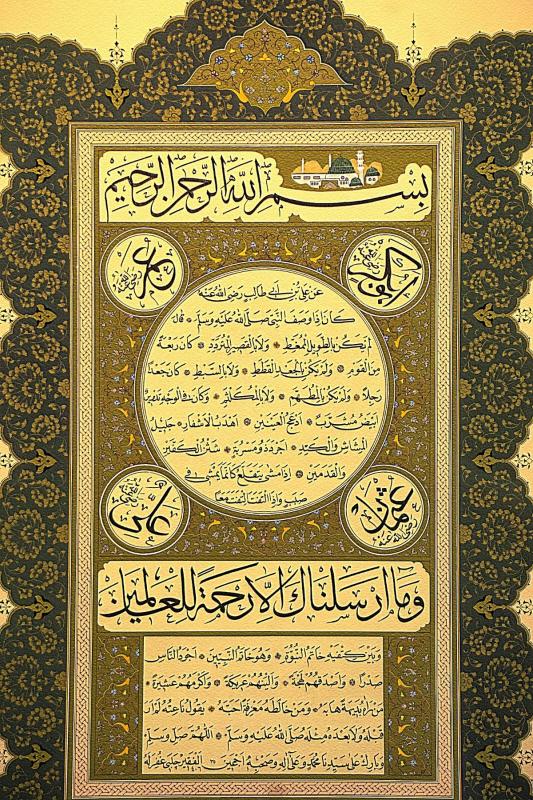 بسم الله الرحمن الرحيم
ابو بكر رضي الله عنه
عمر رضي الله عنه
عن علي بن ابي طالب رضى الله عنه
كان اذا وصف النبى صلى الله عليه وسلم قال
لم يكن بالطويل الممغط ولا بالقصير المتردد كان ربعة
من القوم ولم يكن بالجعد القطط ولا بالسبط كان جعدا
رجلا ولم يكن بالمطهم ولا بالمكلثم وكان فى الوجه تدوير
ابيض مشرب ادعج العينين اهدب الاشفار جليل
المشاش والكتد اجرد ذو مسربة شثن الكفين
والقدمين اذا مشى يتقلع كانما يمشى فى
صبب واذا التفت التفت معا
عثمان رضي الله عنه
علي رضي الله عنه
وما ارسلناك الا رحمة للعالمين
وبين كتفيه خاتم النبوة وهو خاتم النبيين اجود الناس
صدرا واصدقهم لهجة والينهم عريكة واكرمهم عشيرة
من راه بديهة هابه ومن خالطه معرفة احبه يقول ناعته لم ار
قبله ولا بعده مثله صلى الله عليه وسلم اللهم صل وسلم
وبارك على سيدنا محمد وعلى اله وصحبه اجمعين الفقير غفر له